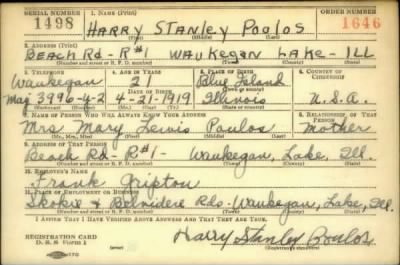 SERIAL NUMBER 1. NAME (Print) ORDER NUMBER
1498 HARRY STANLEY POOLOS 1646
(First) (Middle) (Last)
2. ADDRESS (Print)
BEACH RD-R#1 WAUKEGAN LAKE-ILL
(Number and street or R. F. D. number) (Town) (County) (State)
3. TELEPHONE 4. AGE IN YEARS 5. PLACE OF BIRTH 6. COUNTRY OF CITIZENSHIP
Waukegan 21 Blue Island
DATE OF BIRTH (Town or county)
Maj 3996-Y-2 4-21-1919 Illinois U.S.A.
(Exchange) (Number) (Mo.) (Day) (Yr.) (State or country)
7. NAME OF PERSON WHO WILL ALWAYS KNOW YOUR ADDRESS 8. RELATIONSHIP OF THAT PERSON
Mrs. Mary Lewis Poulos Mother
(Mr., Mrs., Miss) (First) (Middle) (Last)
9. ADDRESS OF THAT PERSON
Beach Rd-R#1- Waukegan, Lake, Ill.
(Number and street or R. F. D. number) (Town) (County) (State)
10. EMPLOYER'S NAME
Frank Gripton
11. PLACE OF EMPLOYMENT OR BUSINESS
Skokie & Belvidere Rds-Waukegan, Lake, Ill.
(Number and street or R. F. D. number) (Town) (County) (State)
I AFFIRM THAT I HAVE VERIFIED ABOVE ANSWERS AND THAT THEY ARE TRUE.
REGISTRATION CARD
D. S. S. Form 1 Harry Stanley Poulos
(Registrant's signature)